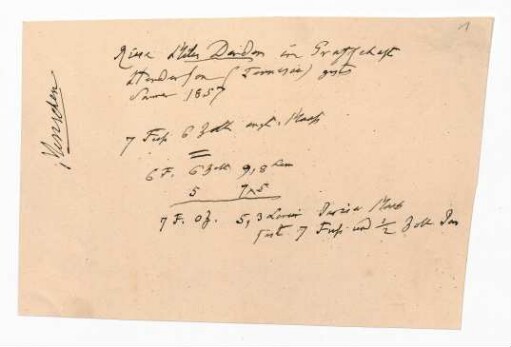 1
Menschen
Riese Miles Dardon in Grafschaft
Henderson (Tennessee) gest
1857
7 Fuß 6 Zoll engl. Maaß
=
6 F. 6 Zoll 9,8 Lin
5
7 F. 0 Z. 5,3 Linien Pariser Maaß
fast 7 Fuß und 1/2 Zoll Par